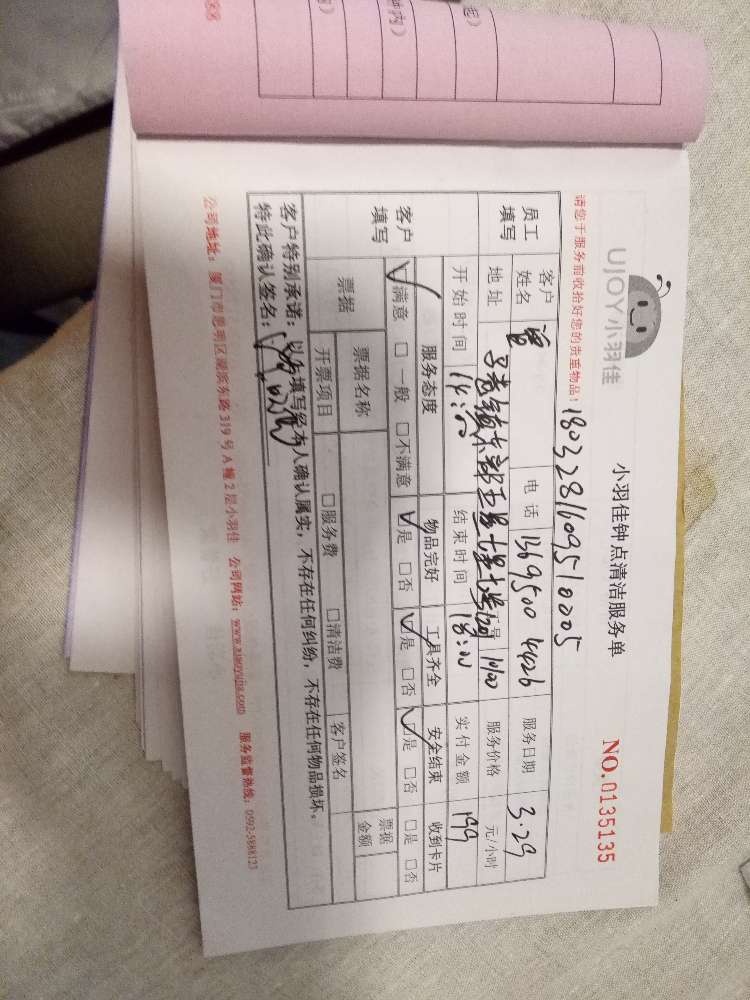 UJOY小羽佳
小羽佳钟点清洁服务单
NO.0135135
请您于服务前收拾好您的贵重物品！
1803281609510005
员工填写
客户姓名 曾
电话 13695004426
服务日期 3.29
地址
服务价格 元/小时
开始时间 14:00
结束时间 18:00
实付金额 199
客户填写
服务态度 物品完好 工具齐全 安全结束 收到卡片
☑满意 □一般 □不满意 ☑是 □否 ☑是 □否 ☑是 □否 □是 □否
票据
票据名称
票据金额
开票项目 □服务费 □清洁费 客户签名
客户特别承诺：以上填写经本人确认属实，不存在任何纠纷，不存在任何物品损坏。
特此确认签名：
公司地址：厦门市思明区湖滨东路319号A幢2层小羽佳 公司网站：www.xiaoyujia.com 服务监督热线：0592-5888123